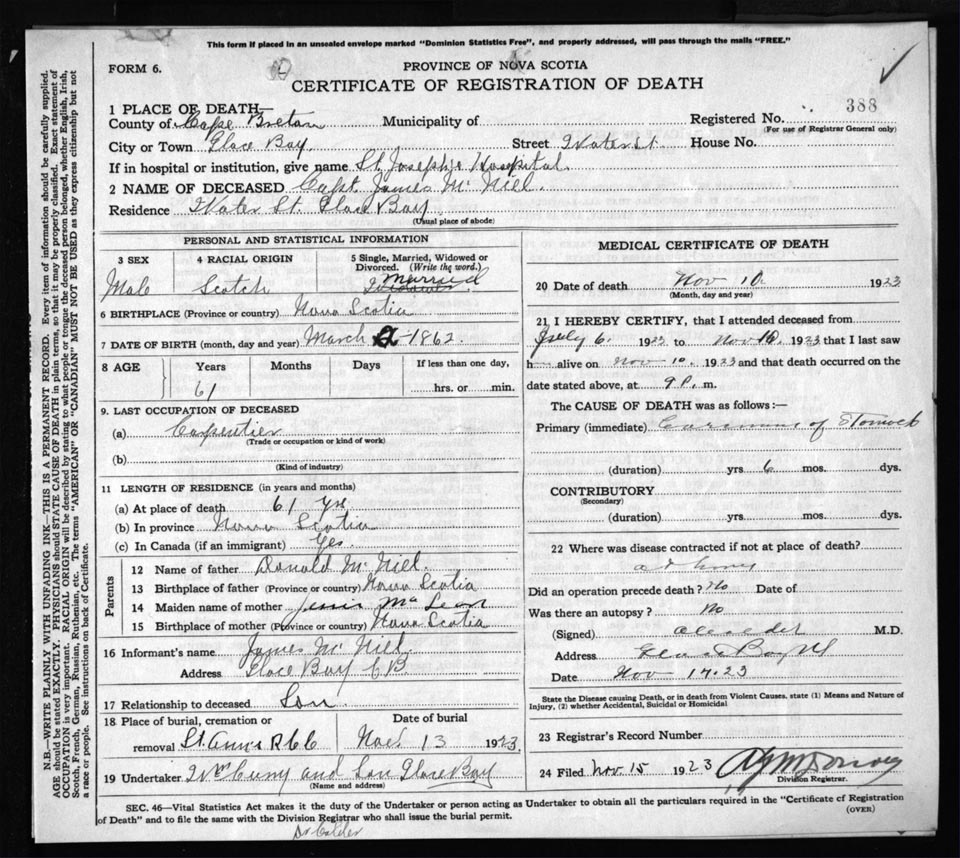 This form if placed in an unsealed envelope marked "Dominion Statistics Free", and properly addressed, will pass through the mails "FREE."
FORM 6.
PROVINCE OF NOVA SCOTIA
CERTIFICATE OF REGISTRATION OF DEATH
388
1 PLACE OF DEATH—
County of Cape Breton Municipality of Registered No.
(For use of Registrar General only)
City or Town Glace Bay. Street Water St. House No.
If in hospital or institution, give name St. Joseph's Hospital.
2 NAME OF DECEASED Capt. James Mc Niel.
Residence Water St. Glace Bay
(Usual place of abode)
PERSONAL AND STATISTICAL INFORMATION
3 SEX 4 RACIAL ORIGIN 5 Single, Married, Widowed or Divorced. (Write the word.)
Male Scotch Married
6 BIRTHPLACE (Province or country) Nova Scotia
7 DATE OF BIRTH (month, day and year) March 1862.
8 AGE Years Months Days If less than one day,
61 hrs. or min.
9. LAST OCCUPATION OF DECEASED
(a) Carpentier
(Trade or occupation or kind of work)
(b)
(Kind of industry)
11 LENGTH OF RESIDENCE (in years and months)
(a) At place of death 61 yrs
(b) In province Nova Scotia
(c) In Canada (if an immigrant) Yes.
Parents
12 Name of father Donald Mc Niel.
13 Birthplace of father (Province or country) Nova Scotia
14 Maiden name of mother Mc Lean
15 Birthplace of mother (Province or country) Nova Scotia
16 Informant's name James Mc Niel.
Address Glace Bay C B
17 Relationship to deceased Son
18 Place of burial, cremation or Date of burial
removal St. Ann's R C C Nov 13 1923
19 Undertaker and Son Glace Bay
(Name and address)
MEDICAL CERTIFICATE OF DEATH
20 Date of death Nov 10. 1923
(Month, day and year)
21 I HEREBY CERTIFY, that I attended deceased from
July 6. 1923 to Nov 10 1923 that I last saw
h alive on Nov 10. 1923 and that death occurred on
date stated above, at 9 P. m.
The CAUSE OF DEATH was as follows:—
Primary (immediate) Carcinoma of Stomach
(duration) yrs 6 mos. dys.
CONTRIBUTORY
(Secondary)
(duration) yrs. mos. dys.
22 Where was disease contracted if not at place of death?
at home
Did an operation precede death? No Date of
Was there an autopsy? No
(Signed) M.D.
Address Glace Bay
Date Nov 17.23
State the Disease causing Death, or in death from Violent Causes, state (1) Means and Nature of
Injury, (2) whether Accidental, Suicidal or Homicidal
23 Registrar's Record Number
24 Filed Nov. 15 1923
Division Registrar.
SEC. 46—Vital Statistics Act makes it the duty of the Undertaker or person acting as Undertaker to obtain all the particulars required in the "Certificate of Registration
of Death" and to file the same with the Division Registrar who shall issue the burial permit.
(OVER)
Dr Calder
N.B.—WRITE PLAINLY WITH UNFADING INK—THIS IS A PERMANENT RECORD. Every item of information should be carefully supplied.
AGE should be stated EXACTLY. PHYSICIANS should STATE CAUSE OF DEATH in plain terms, so that it may be properly classified. Exact statement of
OCCUPATION is very important. RACIAL ORIGIN will be described by stating to what people or tongue the deceased person belonged, whether English, Irish,
Scotch, French, German, Russian, Ruthenian, etc. The terms "AMERICAN" OR "CANADIAN" MUST NOT BE USED as they express citizenship but not
a race or people. See instructions on back of Certificate.